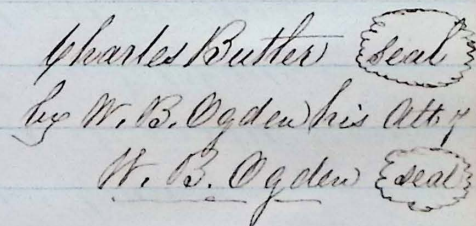 Charles Butler seal
by W. B. Ogden his Att.y
W. B. Ogden seal